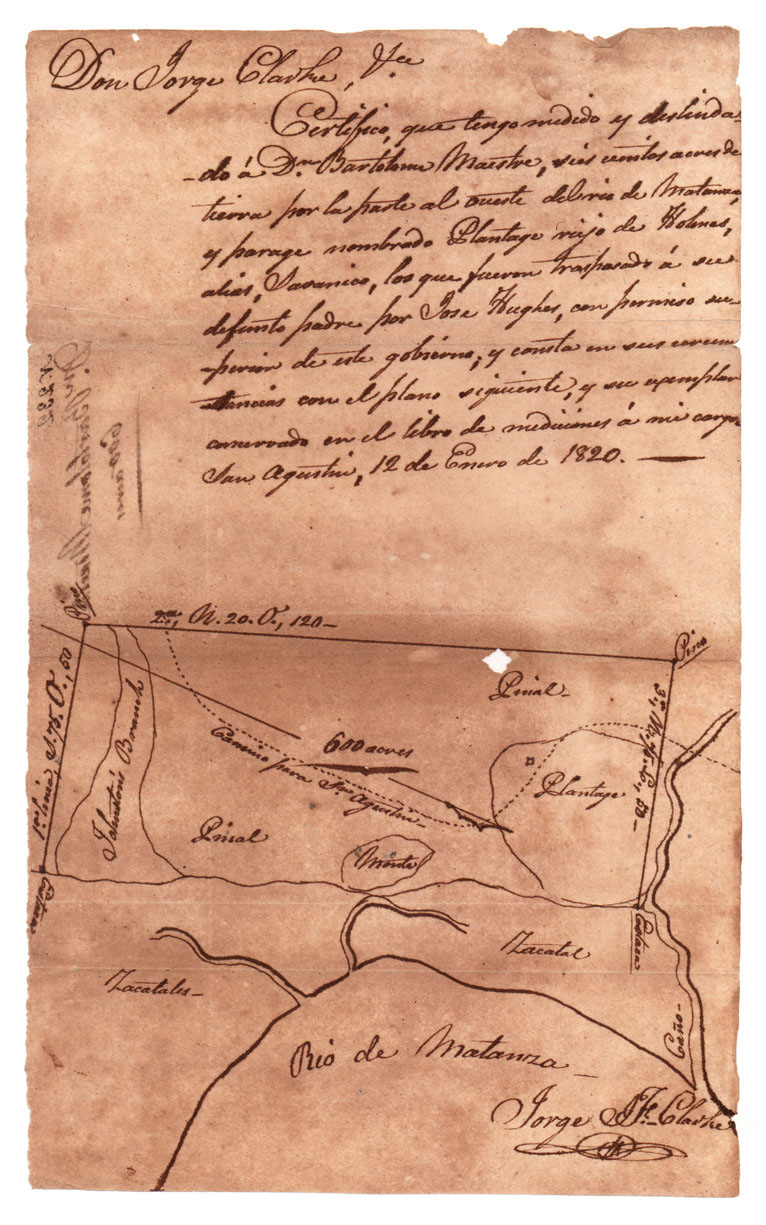 Don Jorge Clarke, Vce
Certifico, que tengo medido y deslinda
-do á Dn Bartolome Maestre, seis cientos acres de
tierra por la parte al oueste del rio de Matanza,
y parage nombrado Plantage viejo de Holmes,
alias, Savanico, los que fueron traspasado á su
defunto padre por Jose Hughes, con permiso su-
-perior de este gobierno; y consta en sus circun
-stancias con el plano siguiente, y su exemplar
conservado en el libro de mediciones á mi cargo
San Agustin, 12 de Enero de 1820.
600 acres
Pino
2a, N. 20. O., 120-
Pino
1ra linea S. 75. O., 50
Johnston's Branch
Pinal-
600 acres
Camino para Sn Agustin-
Plantage
Pinal
Monte
Zacatal
Zacatales-
Caño-
Rio de Matanza-
Jorge J. F. Clarke